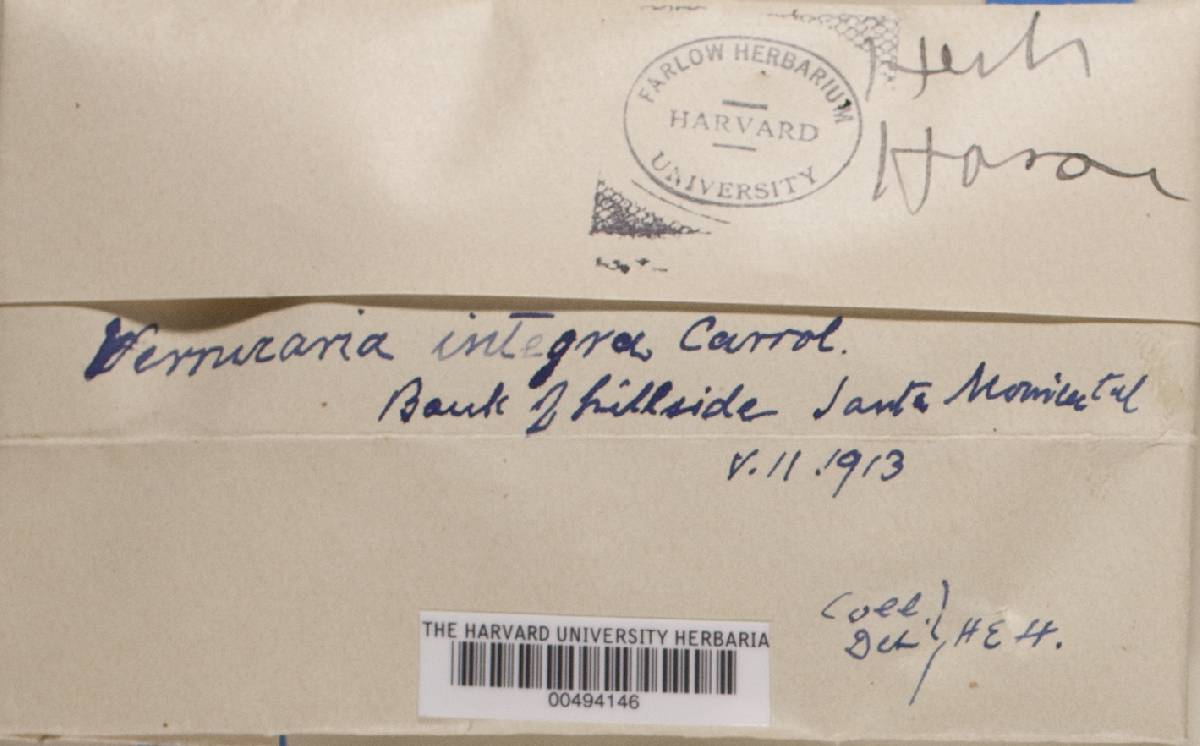 FARLOW HERBARIUM
HARVARD
UNIVERSITY
Herb
Hasse
Verrucaria integra Carrol.
Bank of hillside Santa Monica Cal
V.11.1913
Coll.
Det. H E H.
THE HARVARD UNIVERSITY HERBARIA
00494146